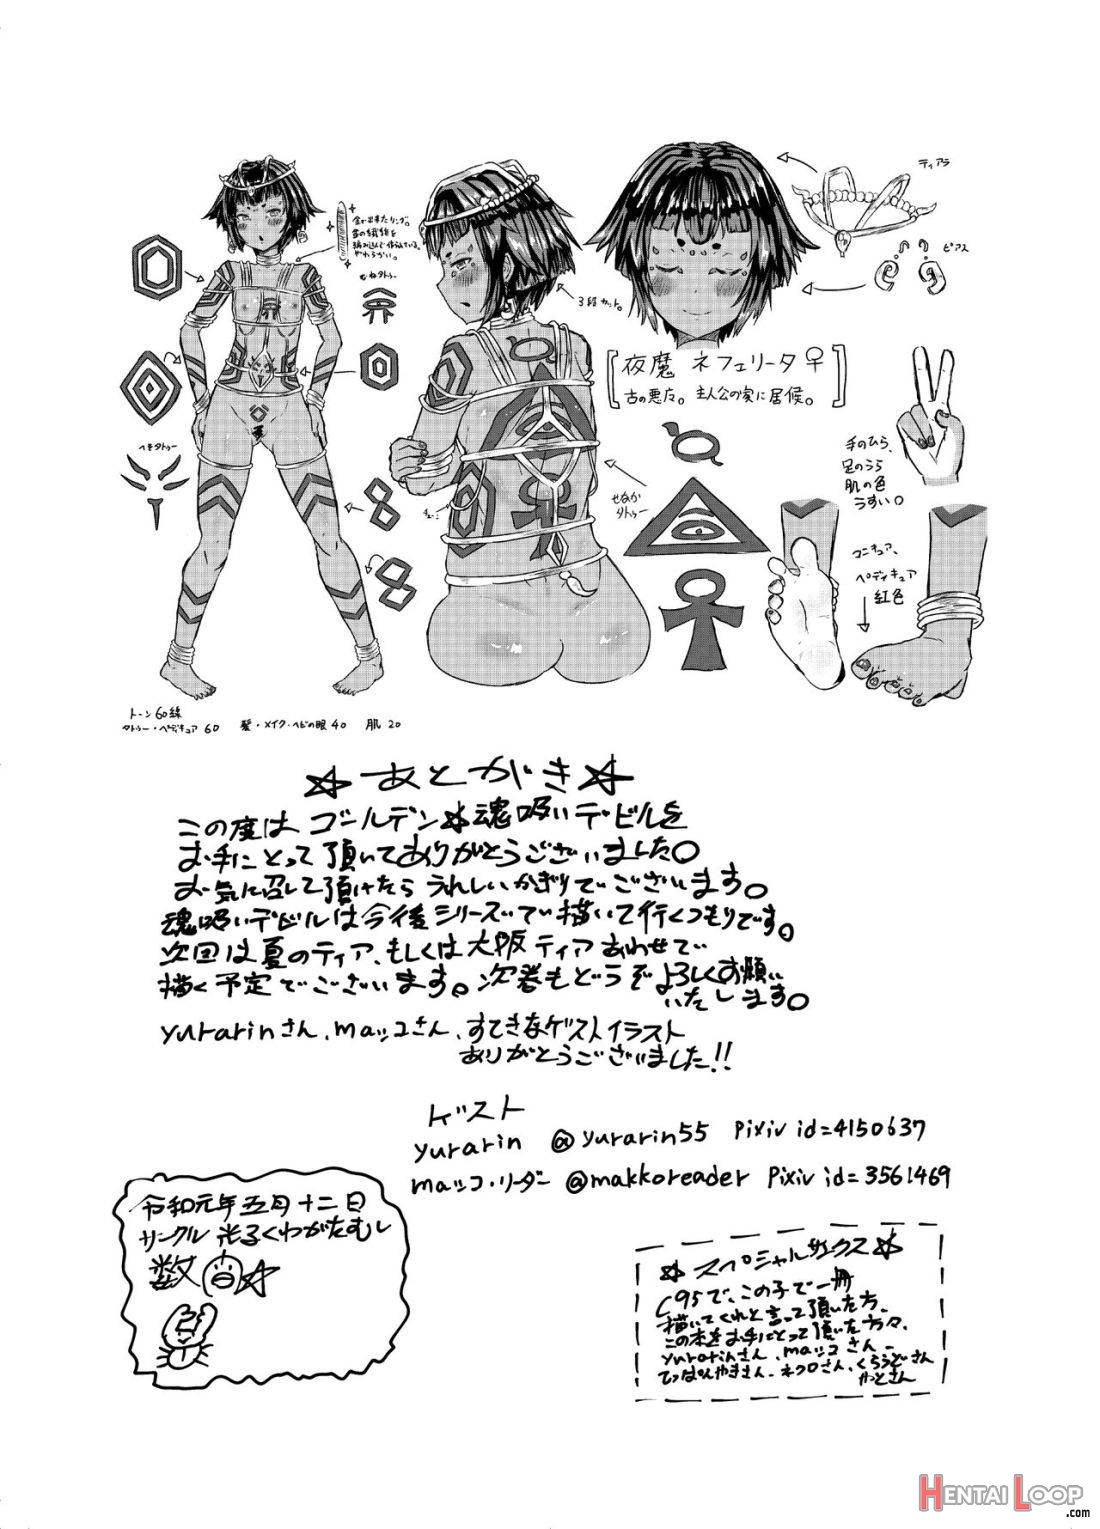 ティアラ
ピアス
むねタトゥー
3段カット。
夜魔 ネフェリータ♀
古の悪魔。主人公の家に居候。
ヘキタトゥー
せなか
タトゥー
手のひら、
足のうら
肌の色
うすい。
マニキュア、
ペディキュア
紅色
トーン60線
タトゥー・ペディキュア 60 髪・メイク・ヘビの眼 40 肌 20
☆あとがき☆
この度はゴールデン☆魂吸いデビルを
お手にとって頂いてありがとうございました。
お気に召して頂けたらうれしいかぎりでございます。
魂吸いデビルは今後シリーズで描いて行くつもりです。
次回は夏のティア、もしくは大阪ティアあわせで
描く予定でございます。次巻もどうぞよろしくお願い
いたします。
yurarinさん、maッコさん、すてきなゲストイラスト
ありがとうございました!!
ゲスト
yurarin @yurarin55 Pixiv id=4150637
maッコ・リーダー @makkoreader Pixiv id=3561469
令和元年五月十二日
サークル 光るくわがたむし
数
☆スペシャルサンクス☆
C95で、この子で一冊
描いてくれと言って頂いた方、
この本をお手にとって頂いた方々、
yurarinさん、maッコさん、
てっぱんやきさん、ネクロさん、くろうどさん
やっとさん
HENTAI LOOP
.com